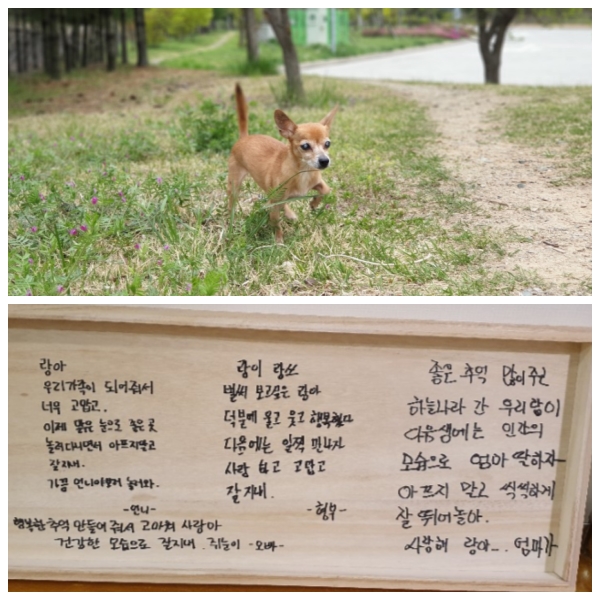 랑아
우리가족이 되어줘서
너무 고맙고.
이제 맑은 눈으로 좋은 곳
놀러다니면서 아프지말고
잘지내.
가끔 언니야보러 놀러와.
-언니-
행복한 추억 만들어 줘서 고마워 사랑아
건강한 모습으로 잘지내. 쥐돌이 -오빠-
랑이 랑쓰
벌써 보고싶은 랑아
덕분에 울고 웃고 행복했다
다음에는 일찍 만나자
사랑 하고 고맙고
잘 지내.
-형부-
좋은 추억 많이주고
하늘나라 간 우리랑이
다음생에는 인간의
모습으로 엄마 딸하자
아프지 말고 씩씩하게
잘 뛰어놀아.
사랑해 랑아... 엄마가